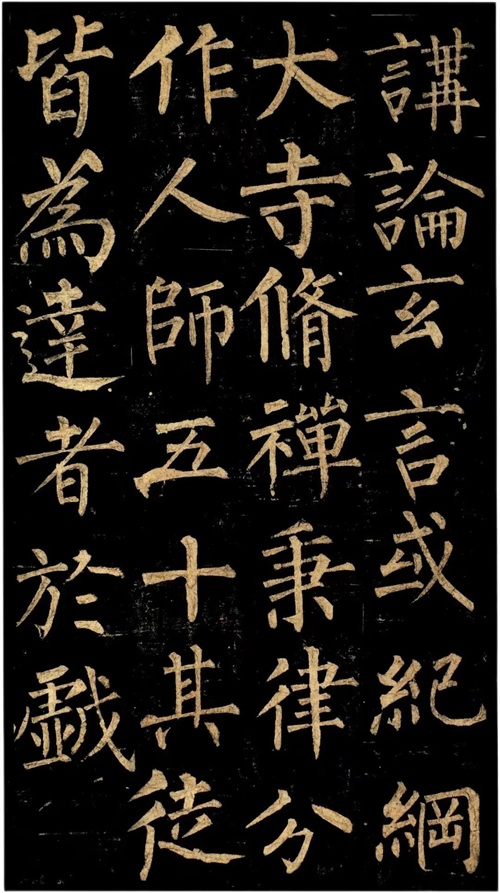 講論玄言或紀綱
大寺脩禪秉律分
作人師五十其徒
皆為達者於戲